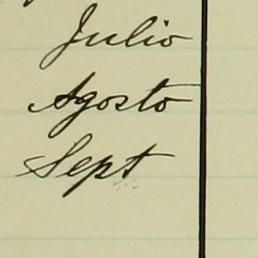 Julio
Agosto
Sept